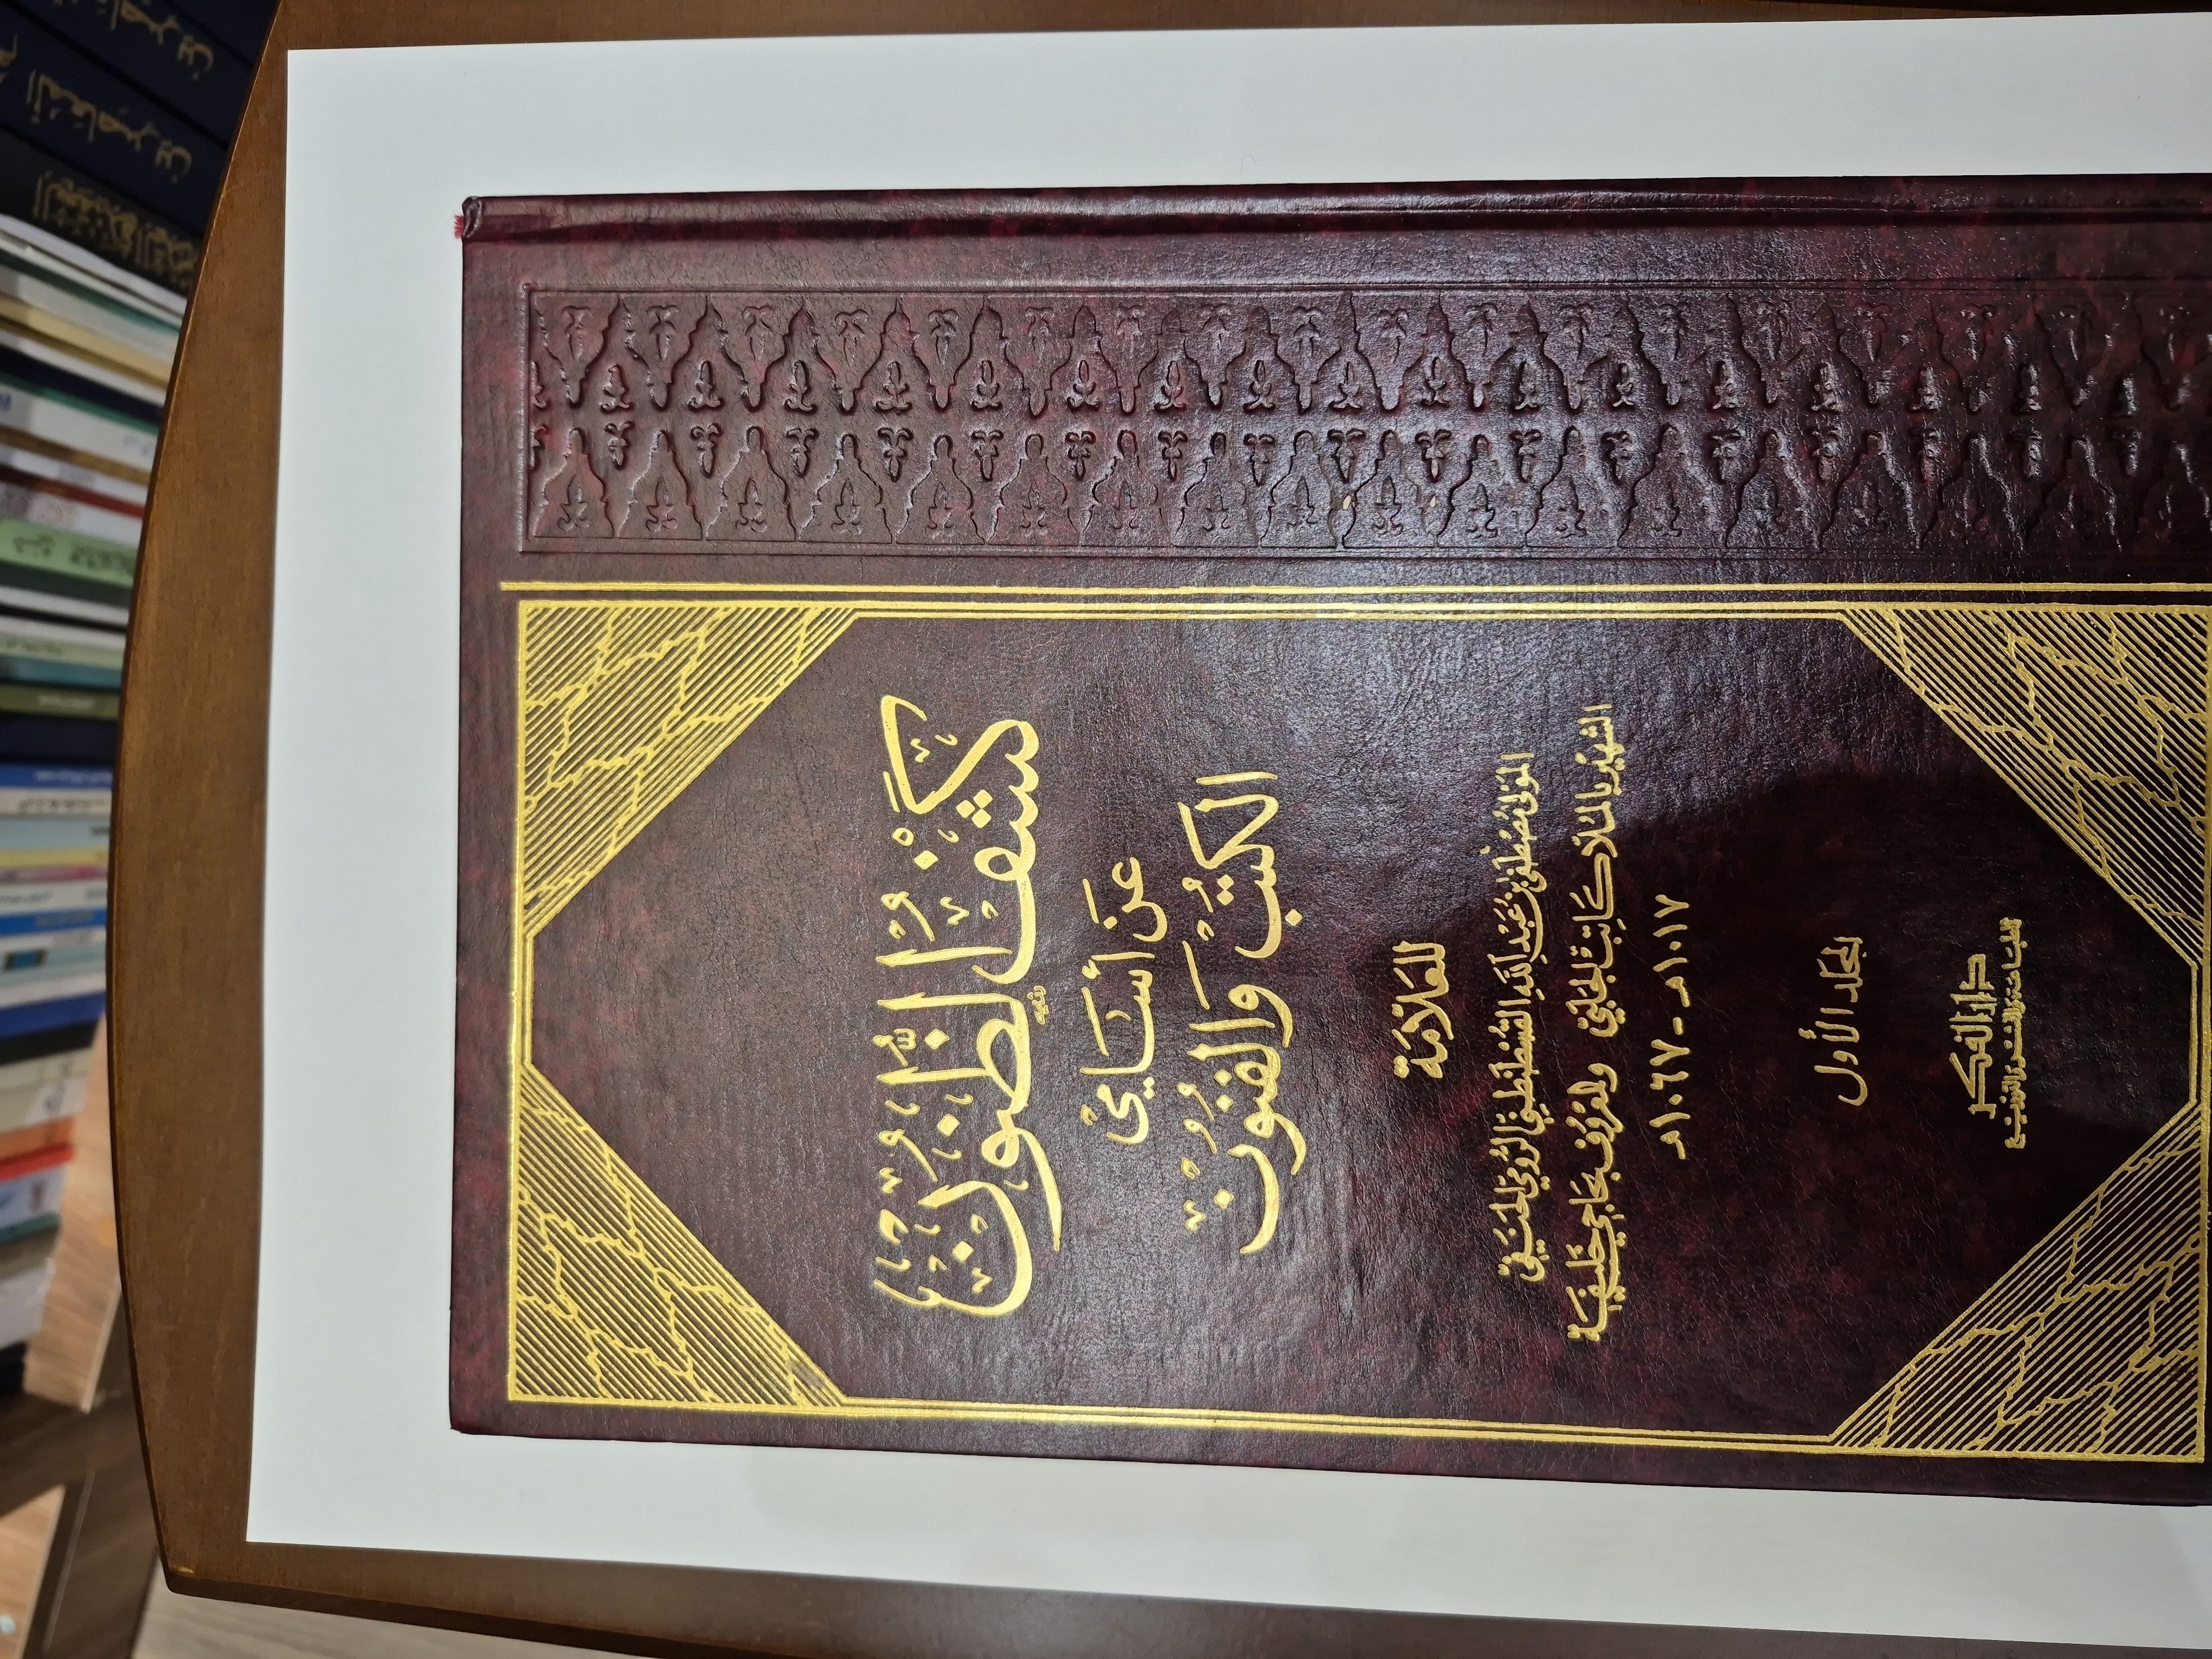 كَشْفُ الظُّنُونِ
عَن أَسَامِي
الكُتُبِ وَالفُنُونِ
للعَلّامَة
المَولى مُصْطَفىٰ بن عَبْد اللّه القُسْطَنْطِينِيّ الرُّومِيّ الحَنَفِيّ
الشَّهِيْر بالمُلّا كَاتِب الجَلبِيّ وَالمَعْرُوف بحَاجِي خَلِيفَة
١٠١٧هـ - ١٠٦٧هـ
المجَلّد الأَوّل
دار الفكر
للطباعة والنشر والتوزيع